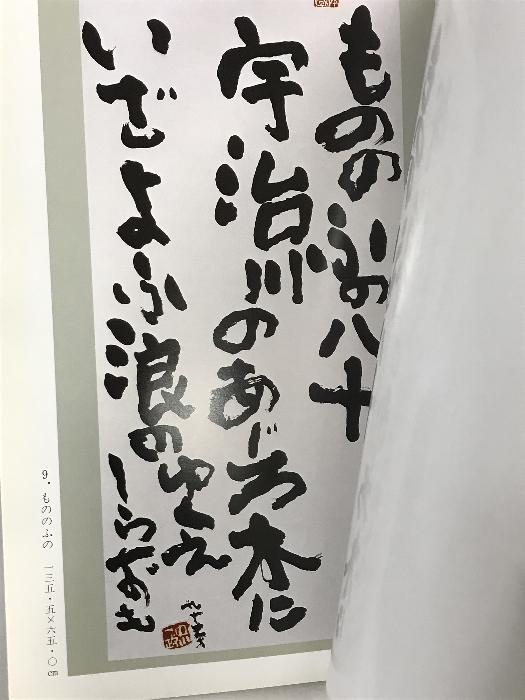 もののふの八十
宇治川のあじろ木に
いざよふ浪のゆくえ
しらずも
九十六叟
9. もののふの 一三五・五×六五・〇cm